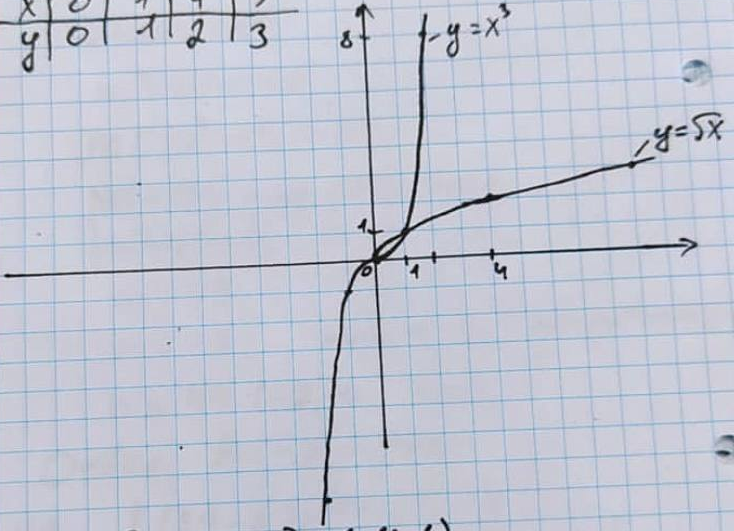 x 0 1 4
y 0 1 2 3
8 y=x³
y=√x
1
0 1 4